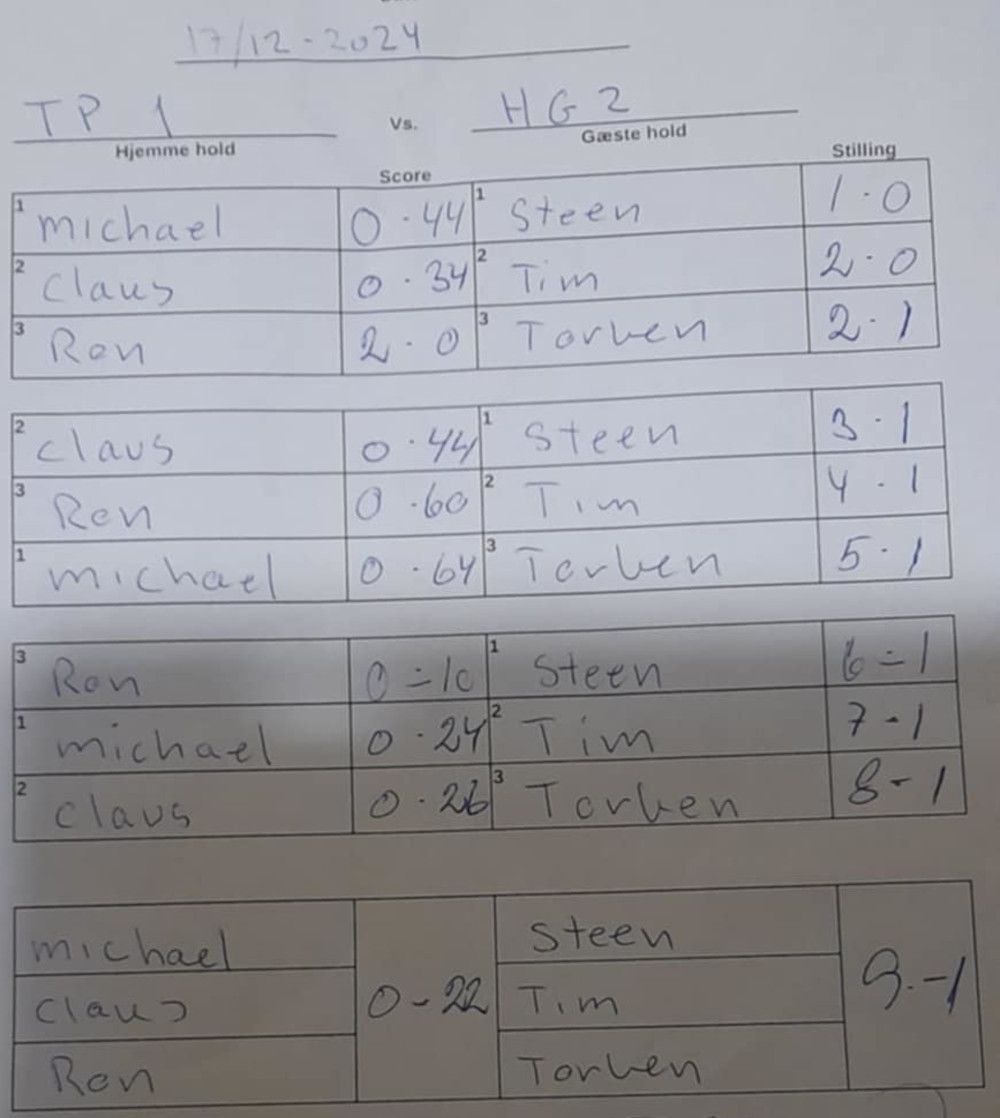 17/12-2024
TP 1 Vs. HG 2
Hjemme hold Gæste hold
Score Stilling
1 Michael 0 - 44 1 Steen 1 - 0
2 Claus 0 - 34 2 Tim 2 - 0
3 Ron 2 - 0 3 Torben 2 - 1
2 Claus 0 - 44 1 Steen 3 - 1
3 Ron 0 - 60 2 Tim 4 - 1
1 Michael 0 - 64 3 Torben 5 - 1
3 Ron 0 = 10 1 Steen 6 = 1
1 Michael 0 - 24 2 Tim 7 - 1
2 Claus 0 - 26 3 Torben 8 - 1
Michael Steen
Claus 0 - 22 Tim 9 - 1
Ron Torben